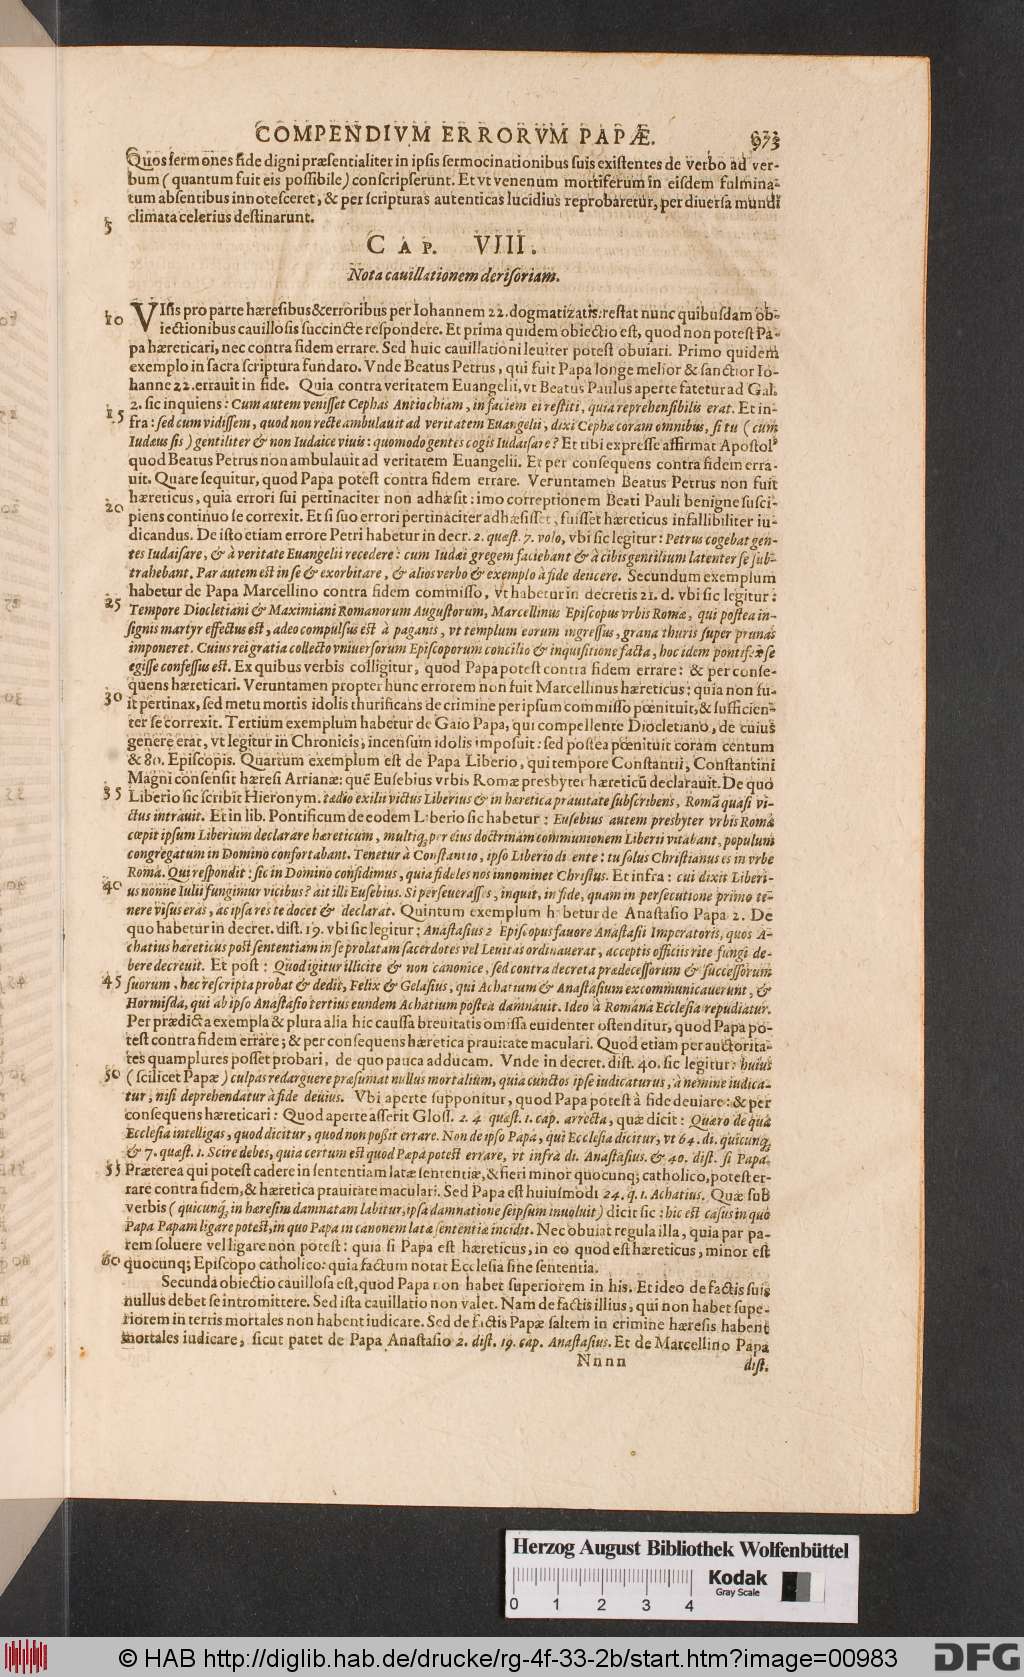 COMPENDIVM ERRORVM PAPÆ. 973
Quos sermones fide digni præsentialiter in ipsis sermocinationibus suis existentes de verbo ad ver-
bum (quantum fuit eis possibile) conscripserunt. Et vt venenum mortiferum in eisdem fulmina-
tum absentibus innotesceret, & per scripturas autenticas lucidius reprobaretur, per diuersa mundi
climata celerius destinarunt.
5
CAP. VIII.
Nota cauillationem derisoriam.
10 VIsis pro parte hæresibus & erroribus per Iohannem 22. dogmatizatis: restat nunc quibusdam ob-
iectionibus cauillosis succincte respondere. Et prima quidem obiectio est, quod non potest Pa-
pa hæreticari, nec contra fidem errare. Sed huic cauillationi leuiter potest obuiari. Primo quidem
exemplo in sacra scriptura fundato. Vnde Beatus Petrus, qui fuit Papa longe melior & sanctior Io-
hanne 22. errauit in fide. Quia contra veritatem Euangelii, vt Beatus Paulus aperte fatetur ad Gal.
2. sic inquiens: Cum autem venisset Cephas Antiochiam, in faciem ei restiti, quia reprehensibilis erat. Et in-
15 fra: sed cum vidissem, quod non recte ambulauit ad veritatem Euangelii, dixi Cephæ coram omnibus, si tu (cum
Iudæus sis) gentiliter & non Iudaice viuis: quomodo gentes cogis Iudaisare? Et tibi expresse affirmat Apostol⁹
quod Beatus Petrus non ambulauit ad veritatem Euangelii. Et per consequens contra fidem erra-
uit. Quare sequitur, quod Papa potest contra fidem errare. Veruntamen Beatus Petrus non fuit
hæreticus, quia errori sui pertinaciter non adhæsit: imo correptionem Beati Pauli benigne susci-
20 piens continuo se correxit. Et si suo errori pertinaciter adhæsisset, fuisset hæreticus infallibiliter iu-
dicandus. De isto etiam errore Petri habetur in decr. 2. quæst. 7. volo, vbi sic legitur: Petrus cogebat gen-
tes Iudaisare, & à veritate Euangelii recedere: cum Iudæi gregem faciebant & à cibis gentilium latenter se sub-
trahebant. Par autem est in se & exorbitare, & alios verbo & exemplo à fide deiicere. Secundum exemplum
habetur de Papa Marcellino contra fidem commisso, vt habetur in decretis 21. d. vbi sic legitur:
25 Tempore Diocletiani & Maximiani Romanorum Augustorum, Marcellinus Episcopus vrbis Romæ, qui postea in-
signis martyr effectus est, adeo compulsus est à paganis, vt templum eorum ingressus, grana thuris super prunas
imponeret. Cuius rei gratia collecto vniuersorum Episcoporum concilio & inquisitione facta, hoc idem pontifex se
egisse confessus est. Ex quibus verbis colligitur, quod Papa potest contra fidem errare: & per conse-
quens hæreticari. Veruntamen propter hunc errorem non fuit Marcellinus hæreticus: quia non fu-
30 it pertinax, sed metu mortis idolis thurificans de crimine per ipsum commisso pœnituit, & sufficien-
ter se correxit. Tertium exemplum habetur de Gaio Papa, qui compellente Diocletiano, de cuius
genere erat, vt legitur in Chronicis, incensum idolis imposuit: sed postea pœnituit coram centum
& 80. Episcopis. Quartum exemplum est de Papa Liberio, qui tempore Constantii, Constantini
Magni consensit hæresi Arrianæ: quẽ Eusebius vrbis Romæ presbyter hæreticũ declarauit. De quo
35 Liberio sic scribit Hieronym. tædio exilii victus Liberius & in hæretica prauitate subscribens, Romã quasi vi-
ctus intrauit. Et in lib. Pontificum de eodem Liberio sic habetur: Eusebius autem presbyter vrbis Romã
cœpit ipsum Liberium declarare hæreticum, multiq; per eius doctrinam communionem Liberii vitabant, populum
congregatum in Domino confortabant. Tenetur à Constantio, ipso Liberio di ente: tu solus Christianus es in vrbe
Roma. Qui respondit: sic in Domino confidimus, quia fideles nos innominet Christus. Et infra: cui dixit Liberi-
40 us nonne Iulii fungimur vicibus? ait illi Eusebius. Si perseuerasses, inquit, in fide, quam in persecutione primo te-
nere visus eras, ac ipsa res te docet & declarat. Quintum exemplum habetur de Anastasio Papa 2. De
quo habetur in decret. dist. 19. vbi sic legitur: Anastasius 2 Episcopus fauore Anastasii Imperatoris, quos A-
chatius hæreticus post sententiam in se prolatam sacerdotes vel Leuitas ordinauerat, acceptis officiis rite fungi de-
bere decreuit. Et post: Quod igitur illicite & non canonice, sed contra decreta prædecessorum & successorum
45 suorum, hæc rescripta probat & dedit, Felix & Gelasius, qui Achatium & Anastasium excommunicauerunt, &
Hormisda, qui ab ipso Anastasio tertius eundem Achatium postea damnauit. Ideo à Romana Ecclesia repudiatur.
Per prædicta exempla & plura alia hic caussa breuitatis omissa euidenter ostenditur, quod Papa po-
test contra fidem errare; & per consequens hæretica prauitate maculari. Quod etiam per auctorita-
tes quamplures posset probari, de quo pauca adducam. Vnde in decret. dist. 40. sic legitur: huius
50 (scilicet Papæ) culpas redarguere præsumat nullus mortalium, quia cunctos ipse iudicaturus, à nemine iudica-
tur, nisi deprehendatur à fide deuius. Vbi aperte supponitur, quod Papa potest à fide deuiare: & per
consequens hæreticari: Quod aperte asserit Gloss. 2. 4 quæst. 1. cap. arrecta, quæ dicit: Quæro de qua
Ecclesia intelligas, quod dicitur, quod non possit errare. Non de ipso Papa, qui Ecclesia dicitur, vt 64. di. quicunq;
& 7. quæst. 1. Scire debes, quia certum est quod Papa potest errare, vt infrà di. Anastasius. & 40. dist. si Papa.
55 Præterea qui potest cadere in sententiam latæ sententiæ, & fieri minor quocunq; catholico, potest er-
rare contra fidem, & hæretica prauitate maculari. Sed Papa est huiusmodi 24. q. 1. Achatius. Quæ sub
verbis (quicunq; in hæresim damnatam labitur, ipsa damnatione seipsum inuoluit) dicit sic: hic est casus in quo
Papa Papam ligare potest, in quo Papa in canonem latæ sententiæ incidit. Nec obuiat regula illa, quia par pa-
rem soluere vel ligare non potest: quia si Papa est hæreticus, in eo quod est hæreticus, minor est
60 quocunq; Episcopo catholico: quia factum notat Ecclesia sine sententia.
Secunda obiectio cauillosa est, quod Papa non habet superiorem in his. Et ideo de factis suis
nullus debet se intromittere. Sed ista cauillatio non valet. Nam de factis illius, qui non habet supe-
riorem in terris mortales non habent iudicare. Sed de factis Papæ saltem in crimine hæresis habent
mortales iudicare, sicut patet de Papa Anastasio 2. dist. 19. cap. Anastasius. Et de Marcellino Papa
Nnnn dist.
Herzog August Bibliothek Wolfenbüttel
Kodak
Gray Scale
0 1 2 3 4
© HAB http://diglib.hab.de/drucke/rg-4f-33-2b/start.htm?image=00983
DFG